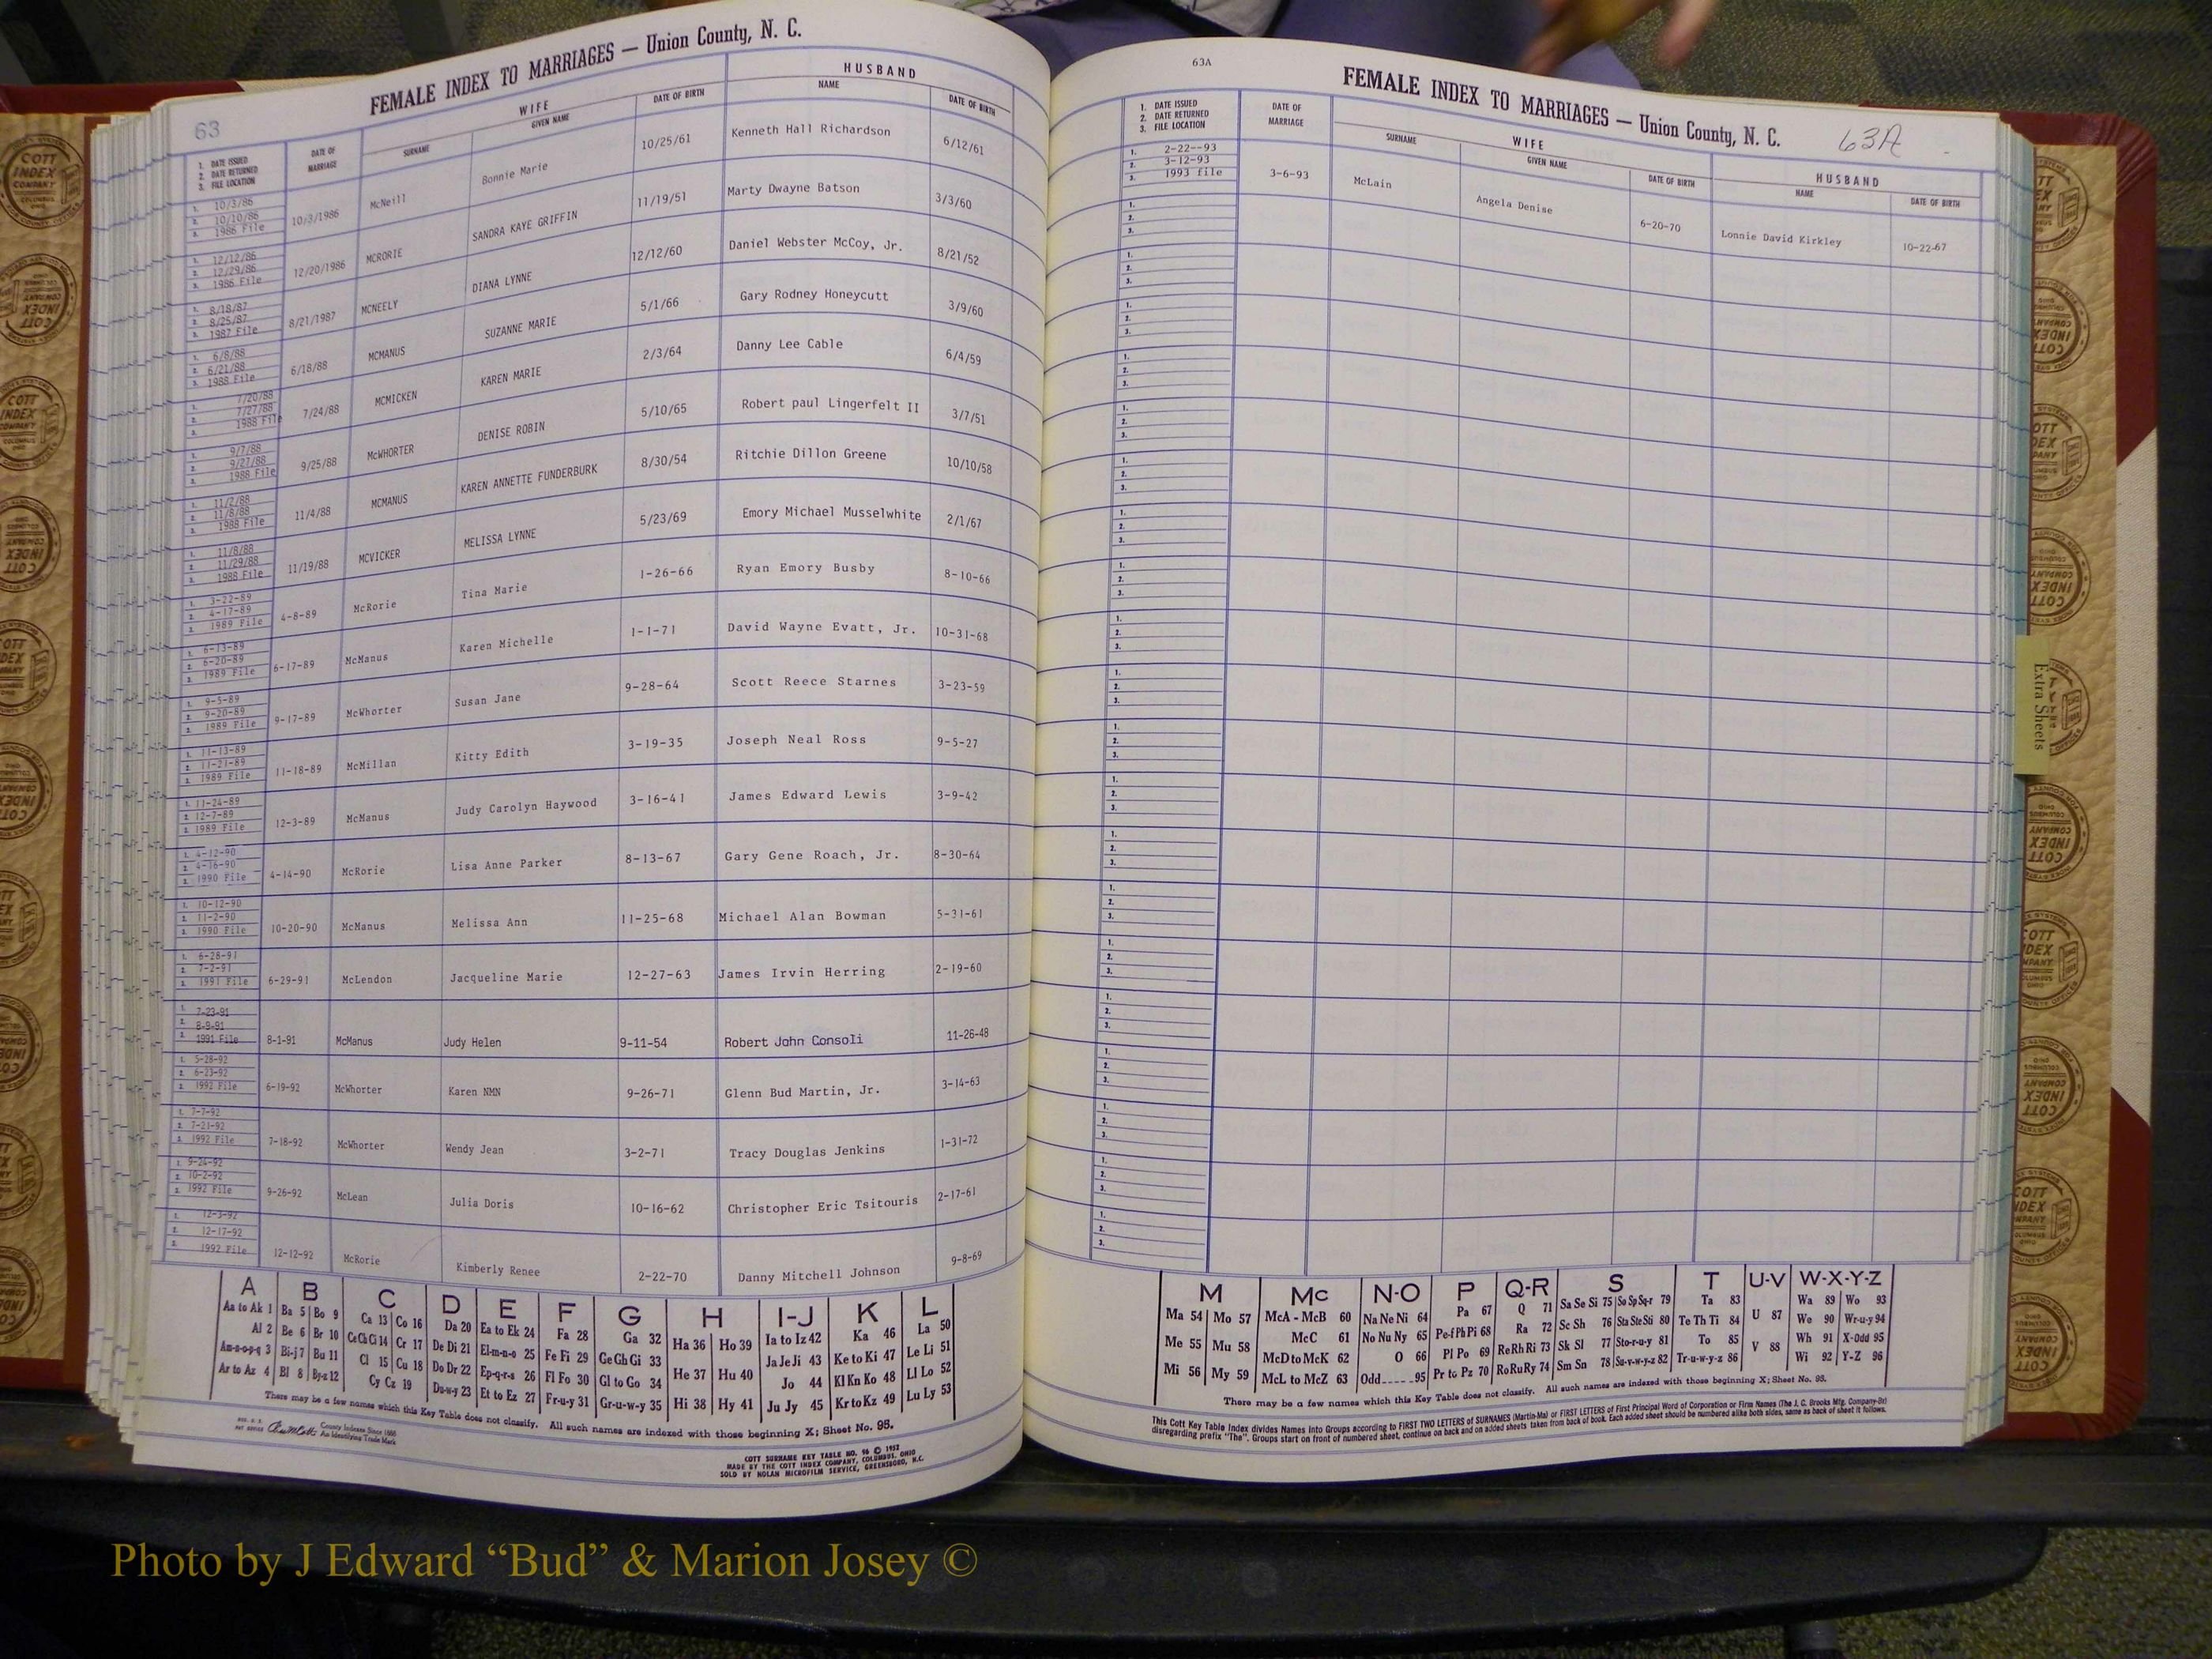 63
FEMALE INDEX TO MARRIAGES — Union County, N. C.
1. DATE ISSUED
2. DATE RETURNED
3. FILE LOCATION
DATE OF MARRIAGE
WIFE
SURNAME GIVEN NAME DATE OF BIRTH
HUSBAND
NAME DATE OF BIRTH
1. 10/3/86
2. 10/10/86
3. 1986 File
10/3/1986 McNeill Bonnie Marie 10/25/61 Kenneth Hall Richardson 6/12/61
1. 12/12/86
2. 12/29/86
3. 1986 File
12/20/1986 MCRORIE SANDRA KAYE GRIFFIN 11/19/51 Marty Dwayne Batson 3/3/60
1. 8/18/87
2. 8/25/87
3. 1987 File
8/21/1987 MCNEELY DIANA LYNNE 12/12/60 Daniel Webster McCoy, Jr. 8/21/52
1. 6/8/88
2. 6/21/88
3. 1988 File
6/18/88 MCMANUS SUZANNE MARIE 5/1/66 Gary Rodney Honeycutt 3/9/60
1. 7/20/88
2. 7/27/88
3. 1988 File
7/24/88 MCMICKEN KAREN MARIE 2/3/64 Danny Lee Cable 6/4/59
1. 9/7/88
2. 9/27/88
3. 1988 File
9/25/88 McWHORTER DENISE ROBIN 5/10/65 Robert paul Lingerfelt II 3/7/51
1. 11/2/88
2. 11/8/88
3. 1988 File
11/4/88 MCMANUS KAREN ANNETTE FUNDERBURK 8/30/54 Ritchie Dillon Greene 10/10/58
1. 11/8/88
2. 11/29/88
3. 1988 File
11/19/88 MCVICKER MELISSA LYNNE 5/23/69 Emory Michael Musselwhite 2/1/67
1. 3-22-89
2. 4-17-89
3. 1989 File
4-8-89 McRorie Tina Marie 1-26-66 Ryan Emory Busby 8-10-66
1. 6-13-89
2. 6-20-89
3. 1989 File
6-17-89 McManus Karen Michelle 1-1-71 David Wayne Evatt, Jr. 10-31-68
1. 9-5-89
2. 9-20-89
3. 1989 File
9-17-89 McWhorter Susan Jane 9-28-64 Scott Reece Starnes 3-23-59
1. 11-13-89
2. 11-21-89
3. 1989 File
11-18-89 McMillan Kitty Edith 3-19-35 Joseph Neal Ross 9-5-27
1. 11-24-89
2. 12-7-89
3. 1989 File
12-3-89 McManus Judy Carolyn Haywood 3-16-41 James Edward Lewis 3-9-42
1. 4-12-90
2. 4-16-90
3. 1990 File
4-14-90 McRorie Lisa Anne Parker 8-13-67 Gary Gene Roach, Jr. 8-30-64
1. 10-12-90
2. 11-2-90
3. 1990 File
10-20-90 McManus Melissa Ann 11-25-68 Michael Alan Bowman 5-31-61
1. 6-28-91
2. 7-2-91
3. 1991 File
6-29-91 McLendon Jacqueline Marie 12-27-63 James Irvin Herring 2-19-60
1. 7-23-91
2. 8-9-91
3. 1991 File
8-1-91 McManus Judy Helen 9-11-54 Robert John Consoli 11-26-48
1. 5-28-92
2. 6-23-92
3. 1992 File
6-19-92 McWhorter Karen NMN 9-26-71 Glenn Bud Martin, Jr. 3-14-63
1. 7-7-92
2. 7-21-92
3. 1992 File
7-18-92 McWhorter Wendy Jean 3-2-71 Tracy Douglas Jenkins 1-31-72
1. 9-24-92
2. 10-2-92
3. 1992 File
9-26-92 McLean Julia Doris 10-16-62 Christopher Eric Tsitouris 2-17-61
1. 12-3-92
2. 12-17-92
3. 1992 File
12-12-92 McRorie Kimberly Renee 2-22-70 Danny Mitchell Johnson 9-8-69
A B C D E F G H I-J K L
Aa to Ak 1 Ba 5 Bo 9 Ca 13 Co 16 Da 20 Ea to Ek 24 Fa 28 Ga 32 Ha 36 Ho 39 Ia to Iz 42 Ka 46 La 50
Al 2 Be 6 Br 10 Ce Ch Ci 14 Cr 17 De Di 21 El-m-n-o 25 Fe Fi 29 Ge Gh Gi 33 He 37 Hu 40 Ja Je Ji 43 Ke to Ki 47 Le Li 51
Am-n-o-p-q 3 Bi-j 7 Bu 11 Cl 15 Cu 18 Do Dr 22 Ep-q-r-s 26 Fl Fo 30 Gl to Go 34 Hi 38 Hy 41 Jo 44 Kl Kn Ko 48 Ll Lo 52
Ar to Az 4 Bl 8 By-z 12 Cy Cz 19 Du-w-y 23 Et to Ez 27 Fr-u-y 31 Gr-u-w-y 35 Ju Jy 45 Kr to Kz 49 Lu Ly 53
There may be a few names which this Key Table does not classify. All such names are indexed with those beginning X; Sheet No. 95.
County Indexes Since 1888
An Identifying Trade Mark
COTT SURNAME KEY TABLE NO. 96 © 1952
MADE BY THE COTT INDEX COMPANY, COLUMBUS, OHIO
SOLD BY NOLAN MICROFILM SERVICE, GREENSBORO, N.C.
63A
FEMALE INDEX TO MARRIAGES — Union County, N. C.
63A
1. DATE ISSUED
2. DATE RETURNED
3. FILE LOCATION
DATE OF MARRIAGE
WIFE
SURNAME GIVEN NAME DATE OF BIRTH
HUSBAND
NAME DATE OF BIRTH
1. 2-22--93
2. 3-12-93
3. 1993 file
3-6-93 McLain Angela Denise 6-20-70 Lonnie David Kirkley 10-22-67
Extra Sheets
M Mc N-O P Q-R S T U-V W-X-Y-Z
Ma 54 Mo 57 McA - McB 60 Na Ne Ni 64 Pa 67 Q 71 Sa Se Si 75 So Sp Sq-r 79 Ta 83 U 87 Wa 89 Wo 93
Me 55 Mu 58 McC 61 No Nu Ny 65 Pe-f Ph Pi 68 Ra 72 Sc Sh 76 Sta Ste Sti 80 Te Th Ti 84 V 88 We 90 Wr-u-y 94
Mi 56 My 59 McD to McK 62 O 66 Pl Po 69 Re Rh Ri 73 Sk Sl 77 Sto-r-u-y 81 To 85 Wh 91 X-Odd 95
McL to McZ 63 Odd-----95 Pr to Pz 70 Ro Ru Ry 74 Sm Sn 78 Su-v-w-y-z 82 Tr-u-w-y-z 86 Wi 92 Y-Z 96
There may be a few names which this Key Table does not classify. All such names are indexed with those beginning X; Sheet No. 95.
This Cott Key Table Index divides Names Into Groups according to FIRST TWO LETTERS of SURNAMES (Martin-Ma) or FIRST LETTERS of First Principal Word of Corporation or Firm Names (The J. C. Brooks Mfg. Company-Br)
disregarding prefix "The". Groups start on front of numbered sheet, continue on back and on added sheets taken from back of book. Each added sheet should be numbered alike both sides, same as back of sheet it follows.
Photo by J Edward “Bud” & Marion Josey ©